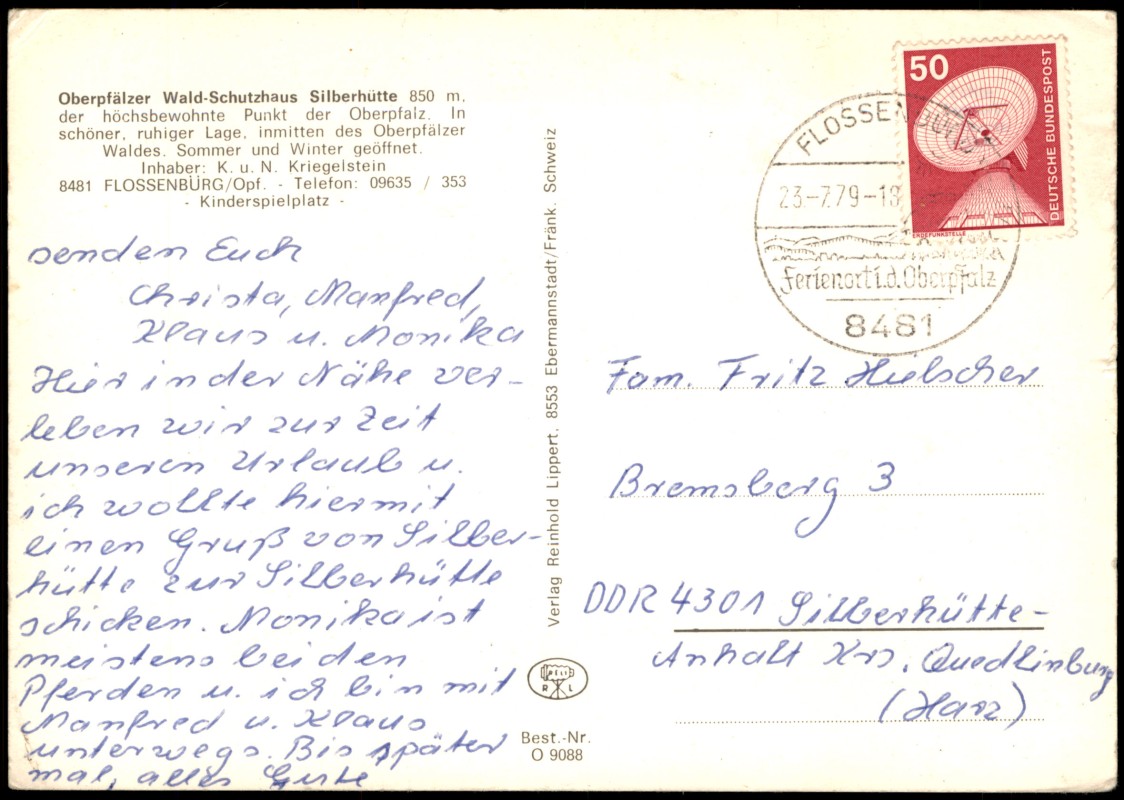 Oberpfälzer Wald-Schutzhaus Silberhütte 850 m,
der höchsbewohnte Punkt der Oberpfalz. In
schöner, ruhiger Lage, inmitten des Oberpfälzer
Waldes. Sommer und Winter geöffnet.
Inhaber: K. u. N. Kriegelstein
8481 FLOSSENBÜRG/Opf. - Telefon: 09635 / 353
- Kinderspielplatz -
senden Euch
Christa, Manfred,
Klaus u. Monika
Hier in der Nähe ver-
leben wir zur Zeit
unseren Urlaub u.
ich wollte hiermit
einen Gruß von Silber-
hütte zur Silberhütte
schicken. Monika ist
meistens bei den
Pferden u. ich bin mit
Manfred u. Klaus
unterwegs. Bis später
mal, alles Gute
Verlag Reinhold Lippert, 8553 Ebermannstadt/Fränk. Schweiz
RELI
R L
Best.-Nr.
O 9088
50
DEUTSCHE BUNDESPOST
ERDEFUNKSTELLE
FLOSSENBÜRG
23.-7.79-18
Ferienort i.d. Oberpfalz
8481
Fam. Fritz Hielscher
Bremsberg 3
DDR 4301 Silberhütte-
Anhalt Krs. Quedlinburg
(Harz)